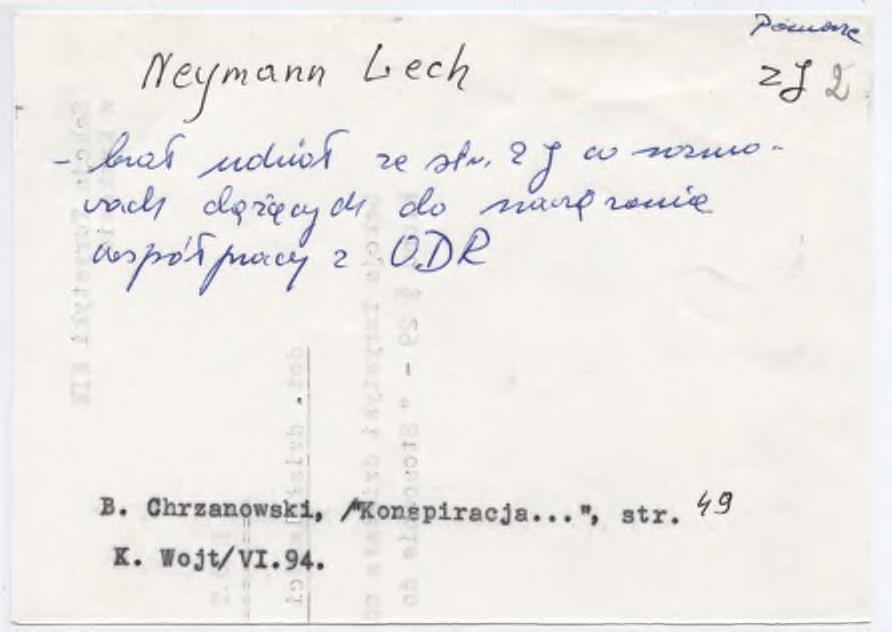 Pomorze
Neymann Lech
ZJ 2
- brał udział ze str. ZJ w rozmo-
wach dążących do nawiązania
współpracy z ODR
B. Chrzanowski, "Konspiracja...", str. 49
K. Wojt/VI.94.